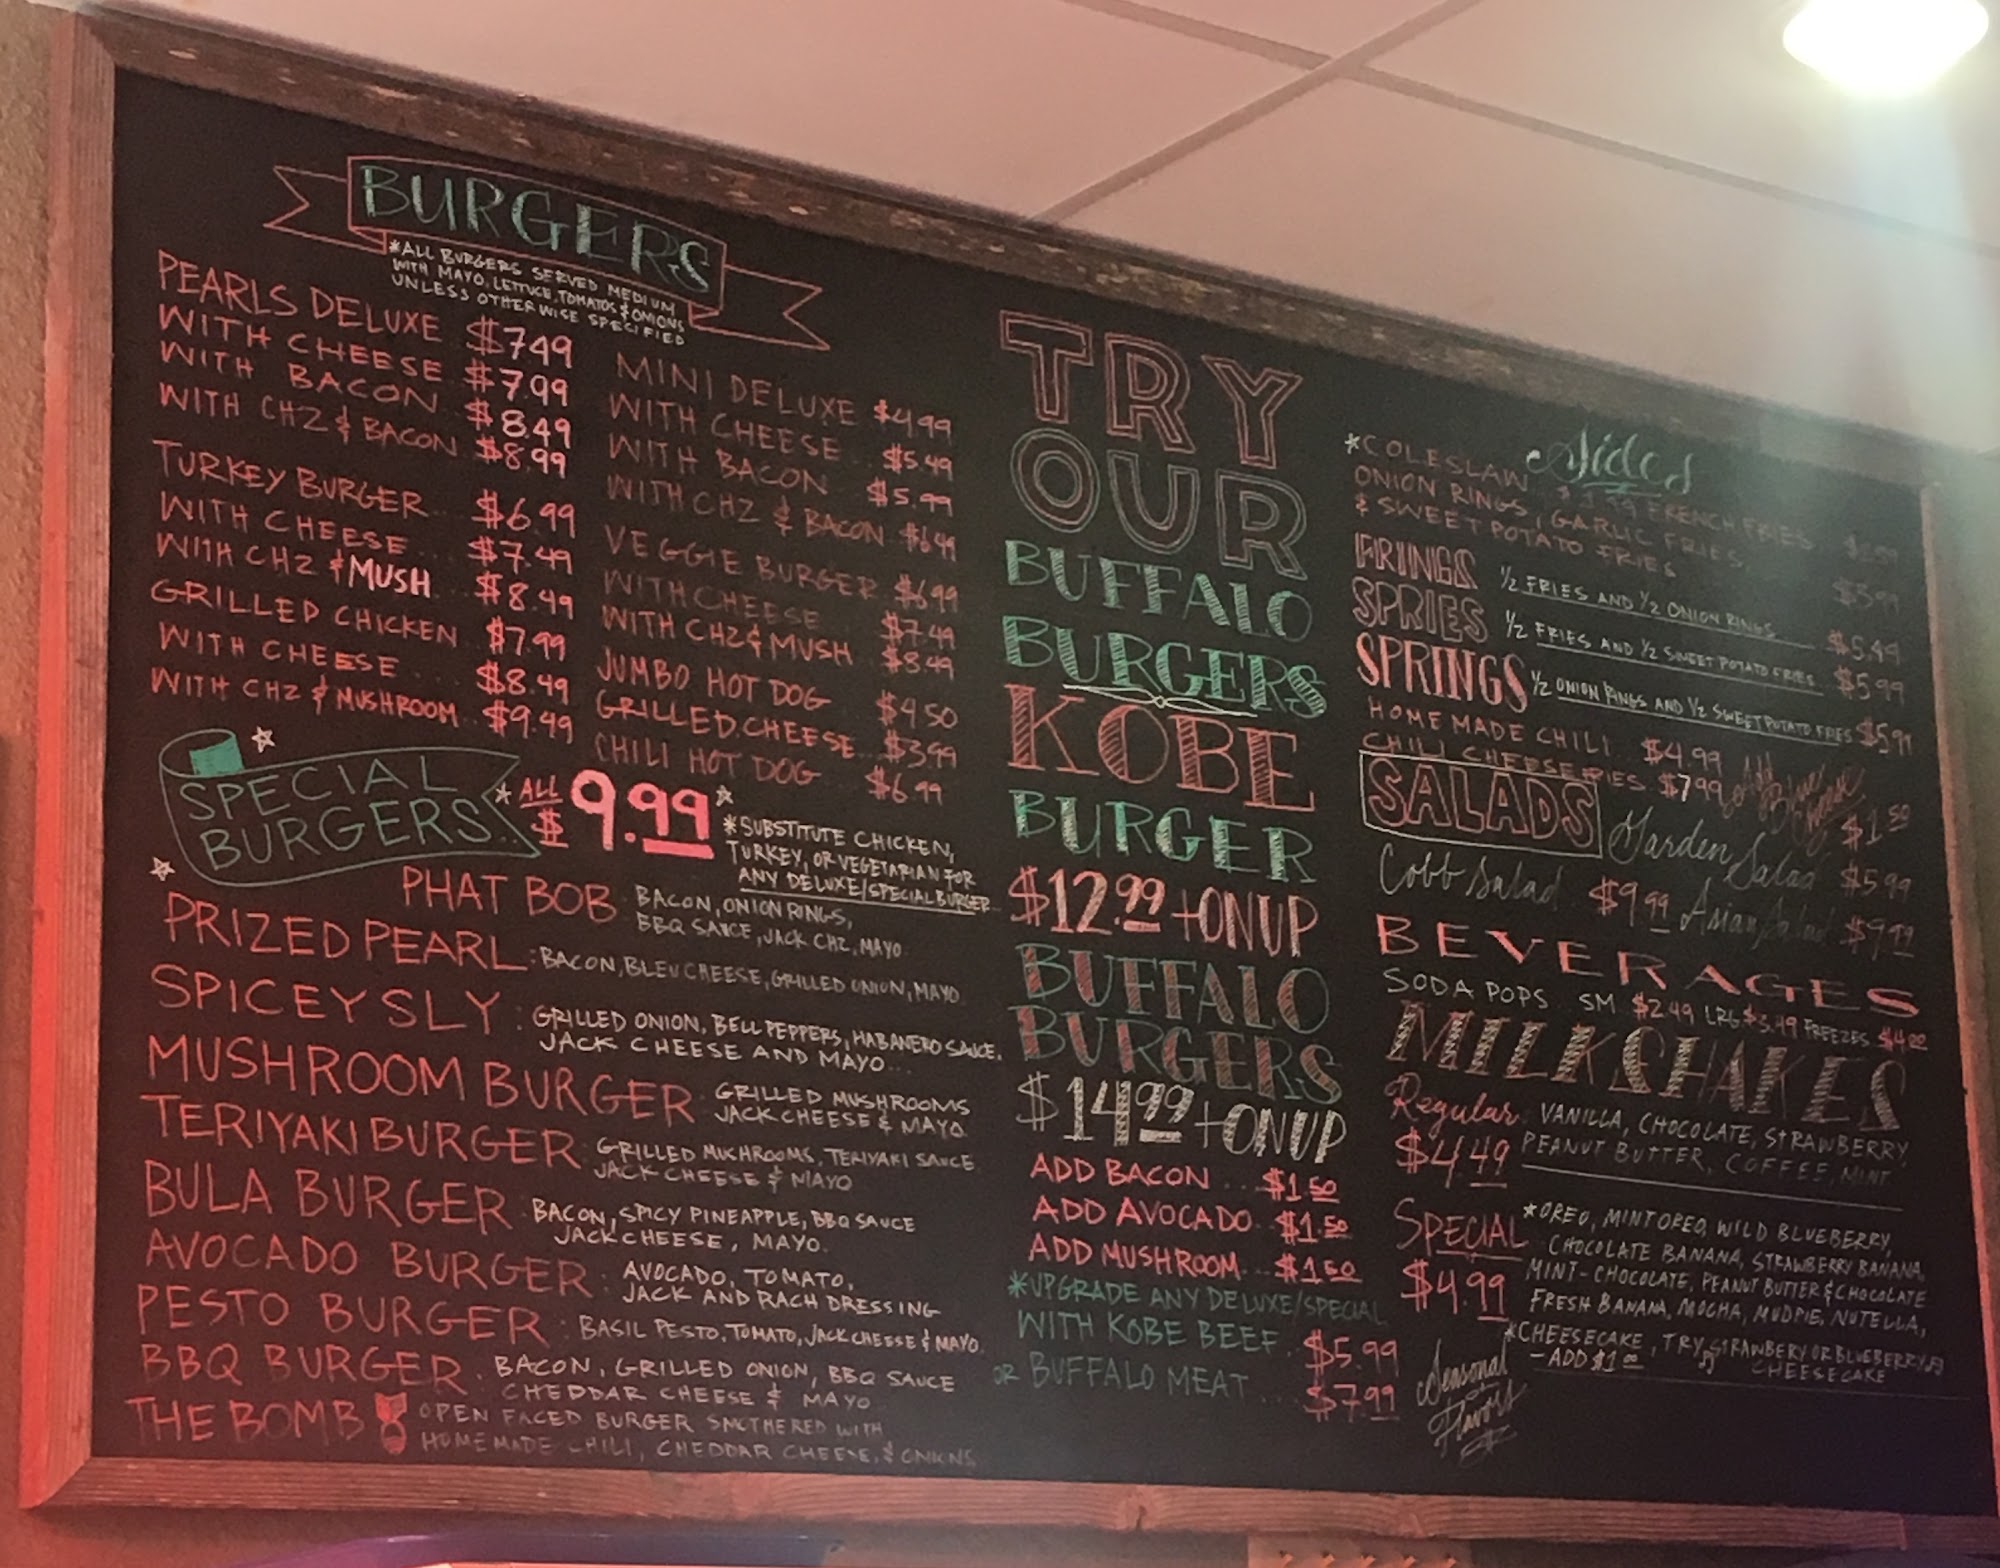 BURGERS
*ALL BURGERS SERVED MEDIUM
WITH MAYO, LETTUCE, TOMATOS & ONIONS
UNLESS OTHERWISE SPECIFIED
PEARLS DELUXE $7.49
WITH CHEESE $7.99
WITH BACON $8.49
WITH CHZ & BACON $8.99
TURKEY BURGER $6.99
WITH CHEESE $7.49
WITH CHZ & MUSH $8.49
GRILLED CHICKEN $7.99
WITH CHEESE $8.49
WITH CHZ & MUSHROOM $9.49
MINI DELUXE $4.99
WITH CHEESE $5.49
WITH BACON $5.99
WITH CHZ & BACON $6.49
VEGGIE BURGER $6.99
WITH CHEESE $7.49
WITH CHZ & MUSH $8.49
JUMBO HOT DOG $4.50
GRILLED CHEESE $3.99
CHILI HOT DOG $6.99
SPECIAL
BURGERS..
*ALL $9.99*
*SUBSTITUTE CHICKEN,
TURKEY, OR VEGETARIAN FOR
ANY DELUXE/SPECIAL BURGER
PHAT BOB BACON, ONION RINGS,
BBQ SAUCE, JACK CHZ, MAYO
PRIZED PEARL : BACON, BLEU CHEESE, GRILLED ONION, MAYO
SPICEY SLY : GRILLED ONION, BELL PEPPERS, HABANERO SAUCE,
JACK CHEESE AND MAYO...
MUSHROOM BURGER : GRILLED MUSHROOMS
JACK CHEESE & MAYO
TERIYAKI BURGER : GRILLED MUSHROOMS, TERIYAKI SAUCE
JACK CHEESE & MAYO
BULA BURGER : BACON, SPICY PINEAPPLE, BBQ SAUCE
JACK CHEESE, MAYO.
AVOCADO BURGER : AVOCADO, TOMATO,
JACK AND RACH DRESSING
PESTO BURGER : BASIL PESTO, TOMATO, JACK CHEESE & MAYO
BBQ BURGER . BACON, GRILLED ONION, BBQ SAUCE
CHEDDAR CHEESE & MAYO
THE BOMB OPEN FACED BURGER SMOTHERED WITH
HOMEMADE CHILI, CHEDDAR CHEESE, & ONIONS
TRY
OUR
BUFFALO
BURGERS
KOBE
BURGER
$12.99 + ON UP
BUFFALO
BURGERS
$14.99 + ON UP
ADD BACON ... $1.50
ADD AVOCADO .. $1.50
ADD MUSHROOM ... $1.50
*UPGRADE ANY DELUXE/SPECIAL
WITH KOBE BEEF . $5.99
OR BUFFALO MEAT ... $7.99
Sides
*COLESLAW FRENCH FRIES
ONION RINGS, GARLIC FRIES,
& SWEET POTATO FRIES $5.99
FRINGS 1/2 FRIES AND 1/2 ONION RINGS $5.49
SPRIES 1/2 FRIES AND 1/2 SWEET POTATO FRIES $5.99
SPRINGS 1/2 ONION RINGS AND 1/2 SWEET POTATO FRIES $5.99
HOME MADE CHILI . $4.99
CHILI CHEESE FRIES $7.99
$1.50
SALADS
Garden Salad $5.99
Cobb Salad $9.99 Asian Salad $9.99
BEVERAGES
SODA POPS SM $2.49 LRG $3.49 FREEZES $4.00
MILKSHAKES
Regular VANILLA, CHOCOLATE, STRAWBERRY,
$4.49 PEANUT BUTTER, COFFEE, MINT
SPECIAL *OREO, MINT OREO, WILD BLUEBERRY,
CHOCOLATE BANANA, STRAWBERRY BANANA,
$4.99 MINT-CHOCOLATE, PEANUT BUTTER & CHOCOLATE
FRESH BANANA, MOCHA, MUDPIE, NUTELLA,
*CHEESECAKE, TRY STRAWBERY OR BLUEBERRY
- ADD $1.00 CHEESECAKE
Seasonal
Flavors